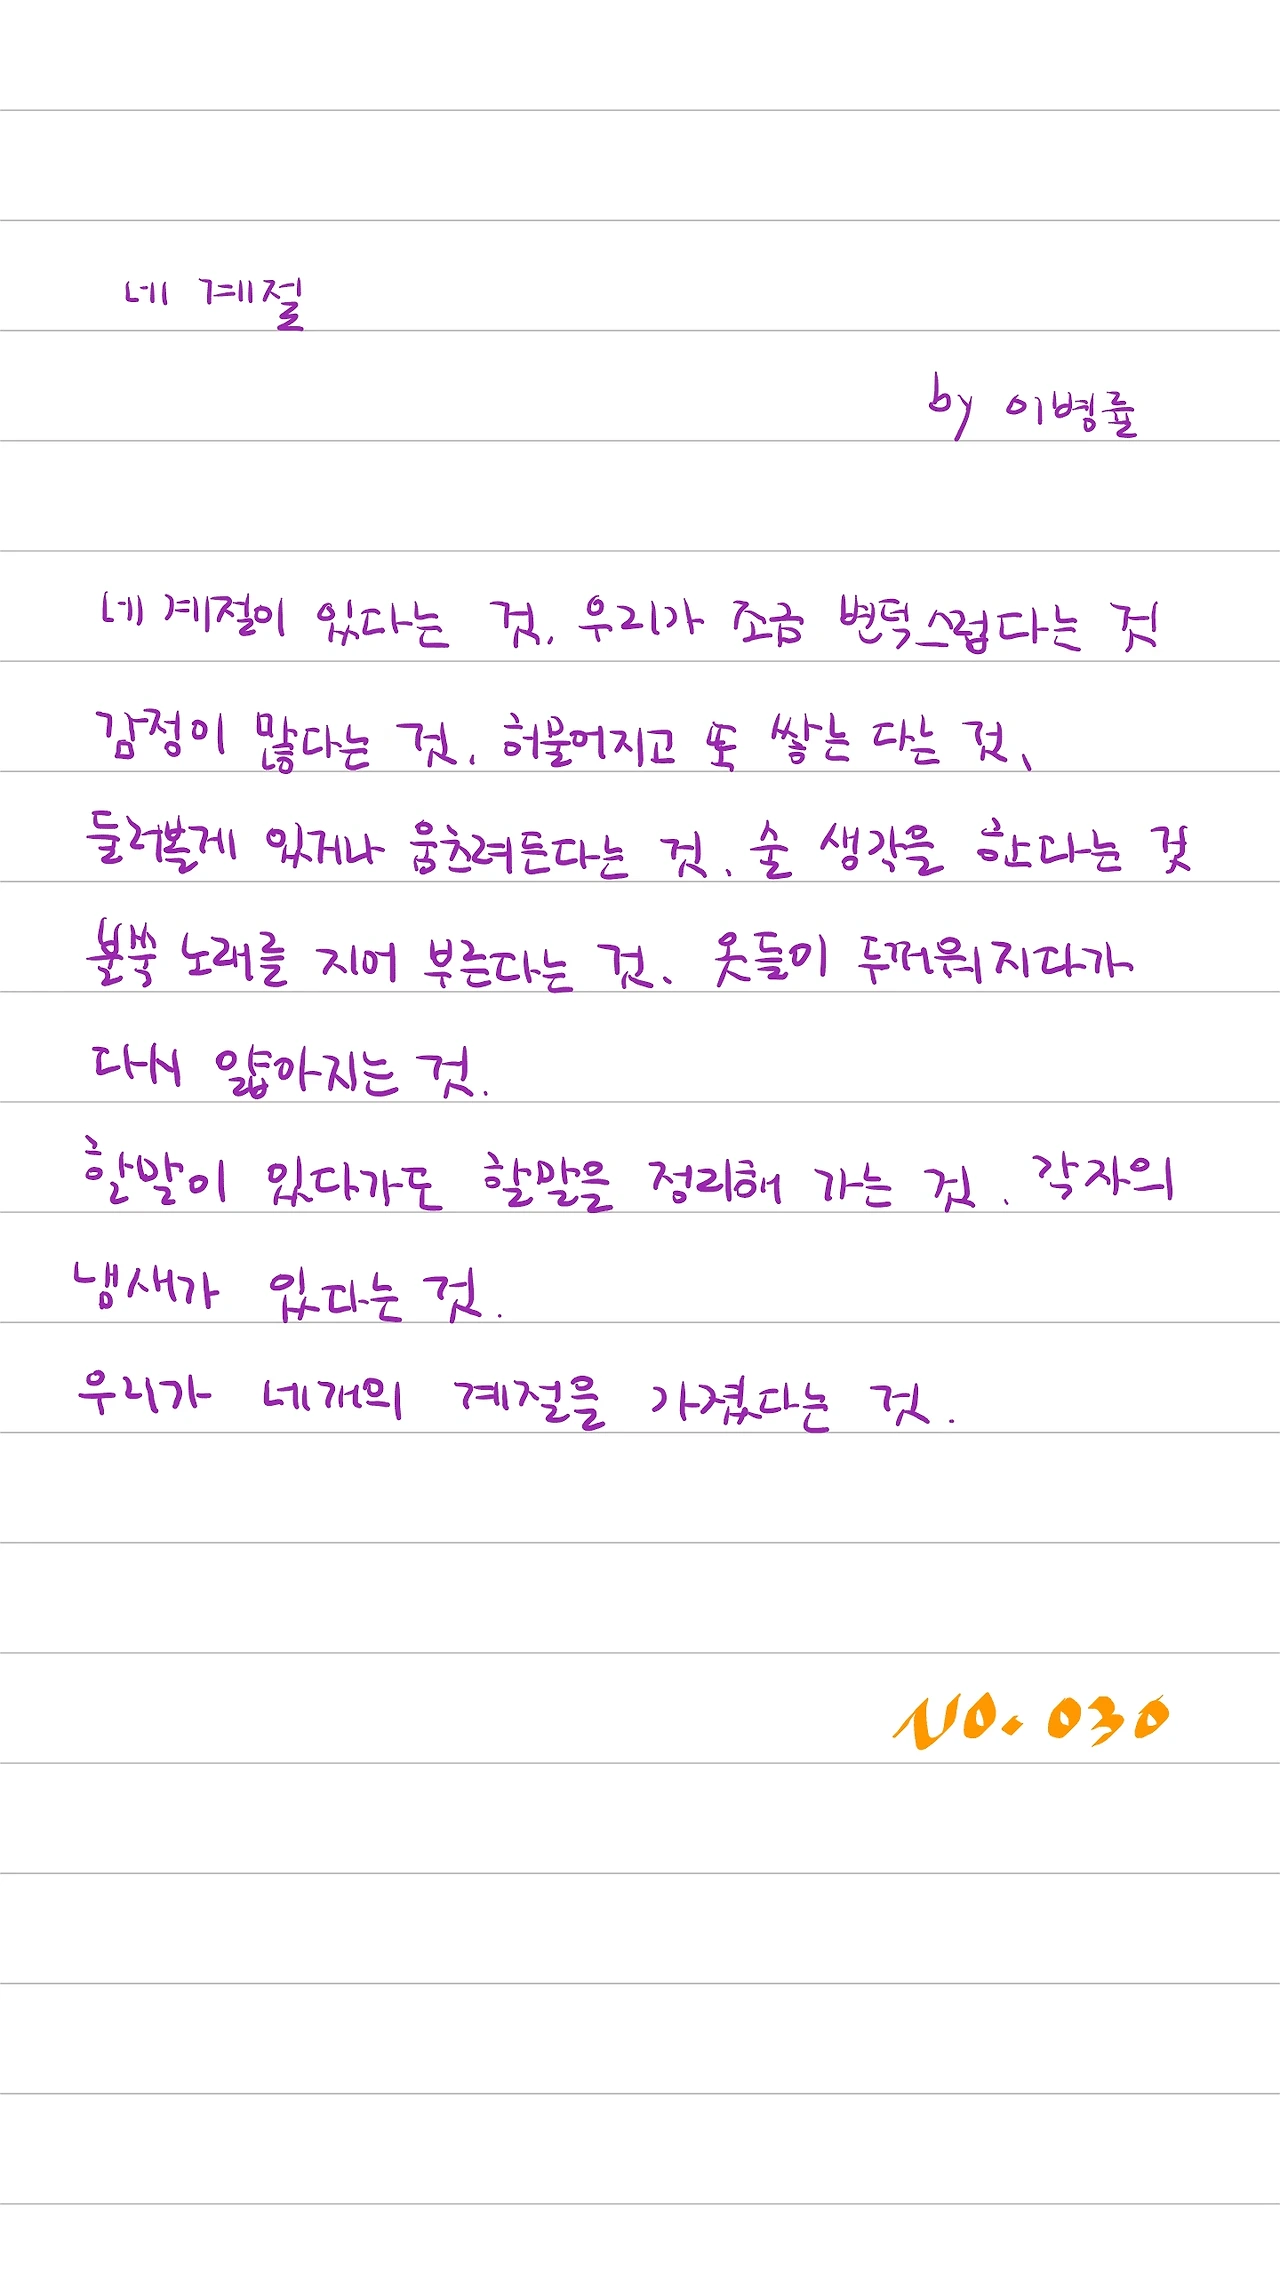 네 계절
by 이병률
네 계절이 있다는 것. 우리가 조금 변덕스럽다는 것
감정이 많다는 것. 허물어지고 또 쌓는 다는 것.
둘러볼게 있거나 움츠려든다는 것. 술 생각을 한다는 것
본뿍 노래를 지어 부른다는 것. 옷들이 두꺼워지다가
다시 얇아지는 것.
할말이 있다가도 할말을 정리해 가는 것. 각자의
냄새가 있다는 것.
우리가 네개의 계절을 가졌다는 것.
NO. 030